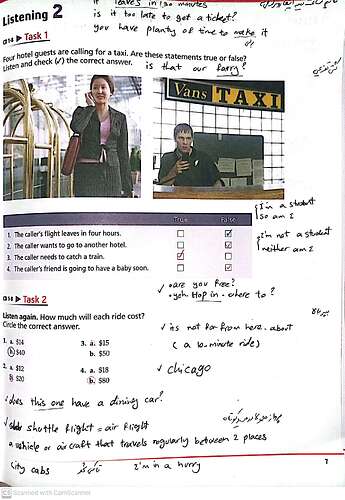 it leaves in 30 minutes
Listening 2
is it too late to get a ticket?
you have planty of time to make it
1-8 ▶ Task 1
Four hotel guests are calling for a taxi. Are these statements true or false?
Listen and check (✓) the correct answer.
is that our farry?
Vans TAXI
I'm a student
so am I
True False
1. The caller's flight leaves in four hours.
2. The caller wants to go to another hotel.
3. The caller needs to catch a train.
4. The caller's friend is going to have a baby soon.
I'm not a student
neither am I
1-8 ▶ Task 2
• are you free?
• yeh. Hop in. where to?
Listen again. How much will each ride cost?
Circle the correct answer.
✓ is not far from here. about
(a 10-minute ride)
1. a. $14
b. $40
2. a. $12
b. $20
3. a. $15
b. $50
4. a. $18
b. $80
✓ chicago
✓ does this one have a dining car?
✓ shuttle flight = air flight
a vehicle or aircraft that travels regularly between 2 places
City cabs
I'm in a hurry
7
CS Scanned with CamScanner